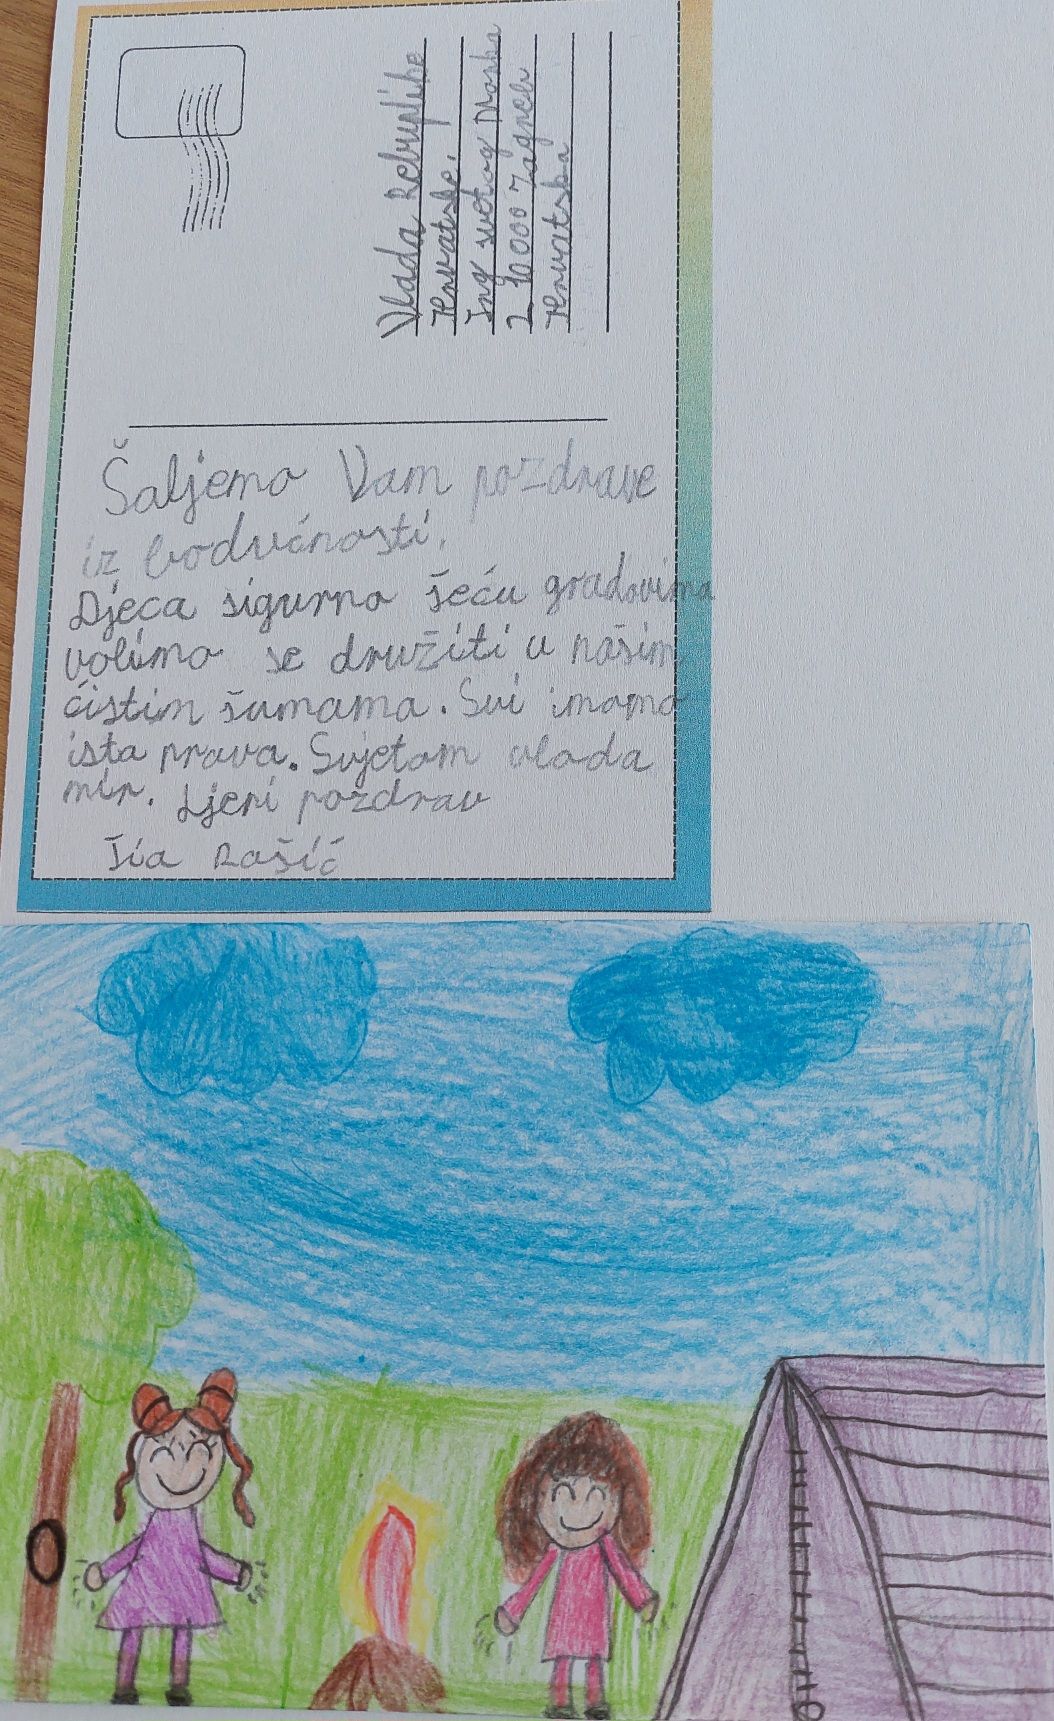 Vlada Rebuplike
Hrvatske.
Trg svetog Marka
2 10000 Zagreb
Hrvatska
Šaljemo Vam pozdrave
iz budućnosti.
Djeca sigurno šeću gradovima
volimo se družiti u našim
čistim šumama. Svi imamo
ista prava. Svjetom vlada
mir. Ljeri pozdrav
Tia Rašić